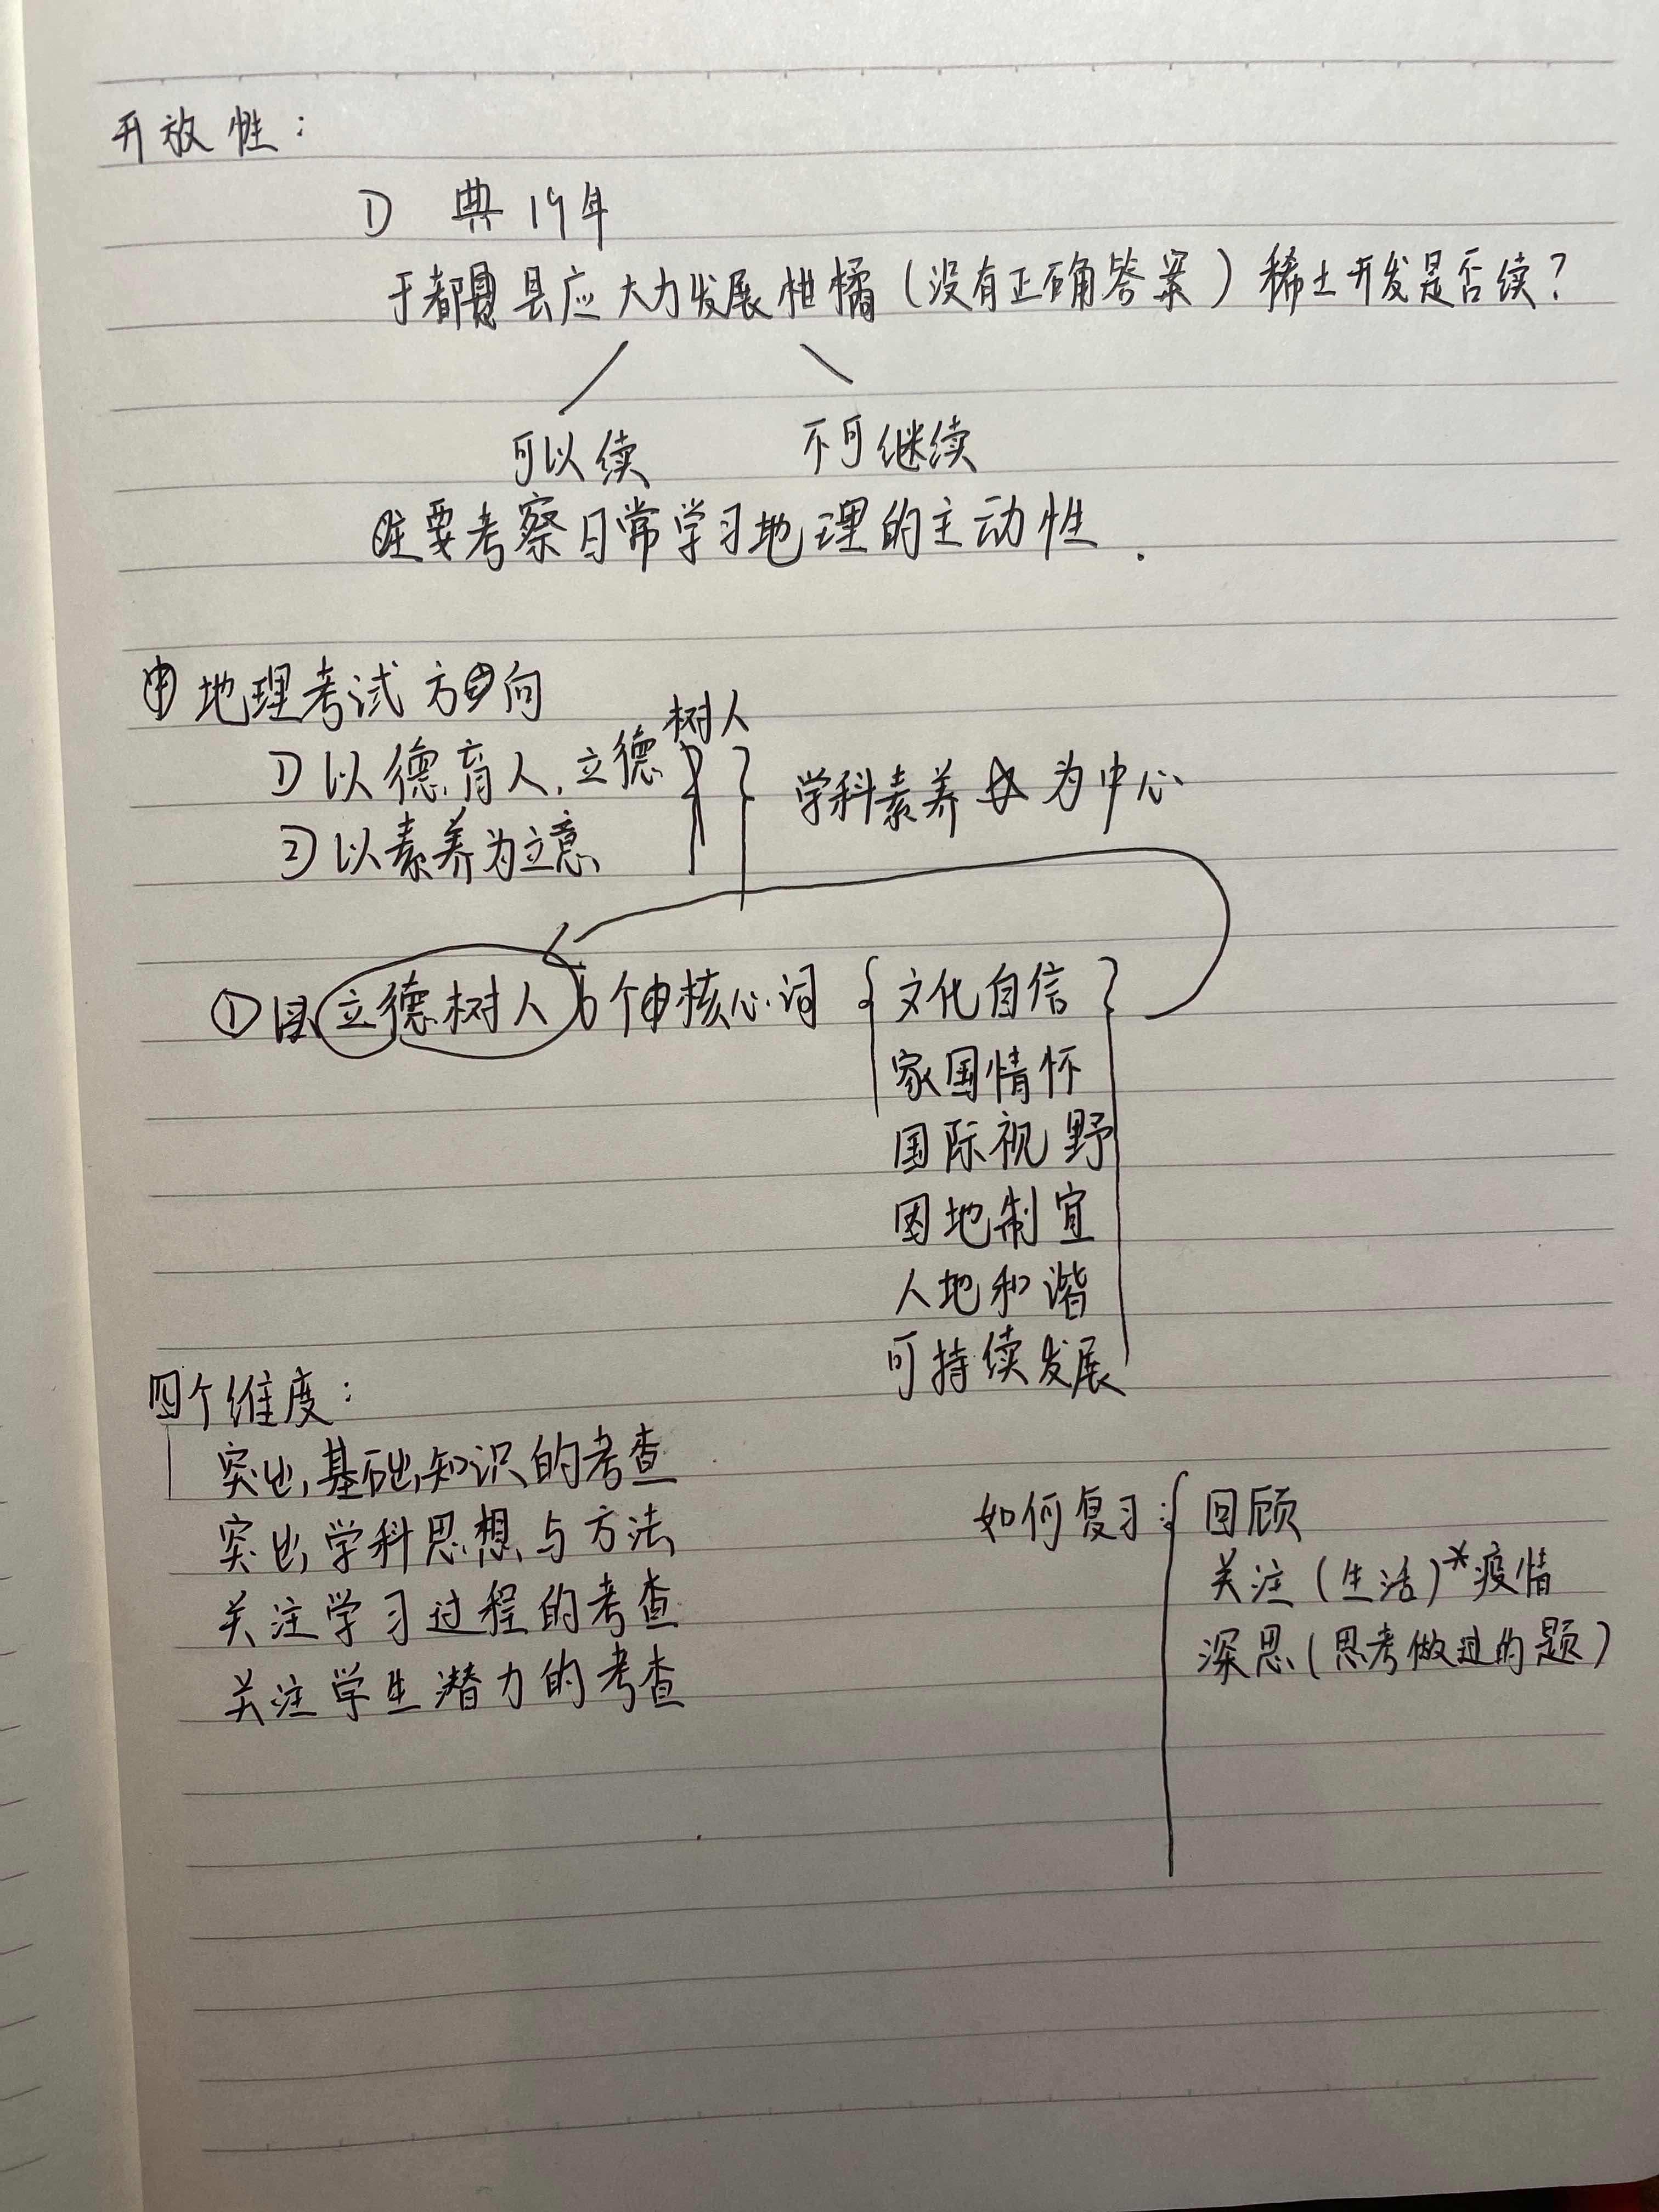 开放性：
1) 典19年
于都县应大力发展柑橘（没有正确答案）稀土开发是否续？
可以续 不可继续
主要考察日常学习地理的主动性.
地理考试方向
1) 以德育人,立德树人
2) 以素养为立意
学科素养为中心
① 立德树人 6个核心词
文化自信
家国情怀
国际视野
因地制宜
人地和谐
可持续发展
四个维度：
突出基础知识的考查
突出学科思想与方法
关注学习过程的考查
关注学生潜力的考查
如何复习：
回顾
关注(生活)*疫情
深思(思考做过的题)